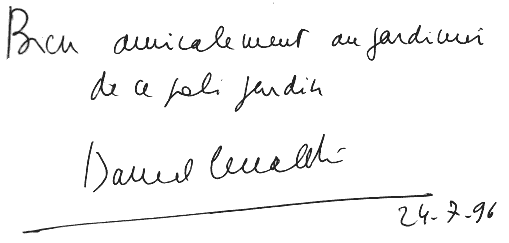 Bien amicalement au jardinier
de ce joli jardin
Daniel
24-7-96